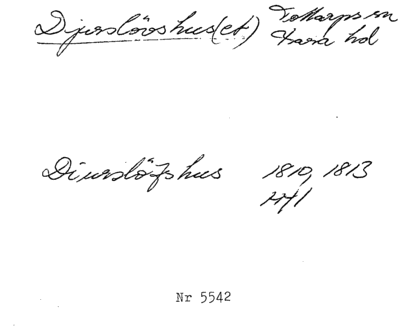 Djurslövshus(et) Tottarps sn
Bara hd
Diurslöfshus 1810, 1813
Hfl
Nr 5542